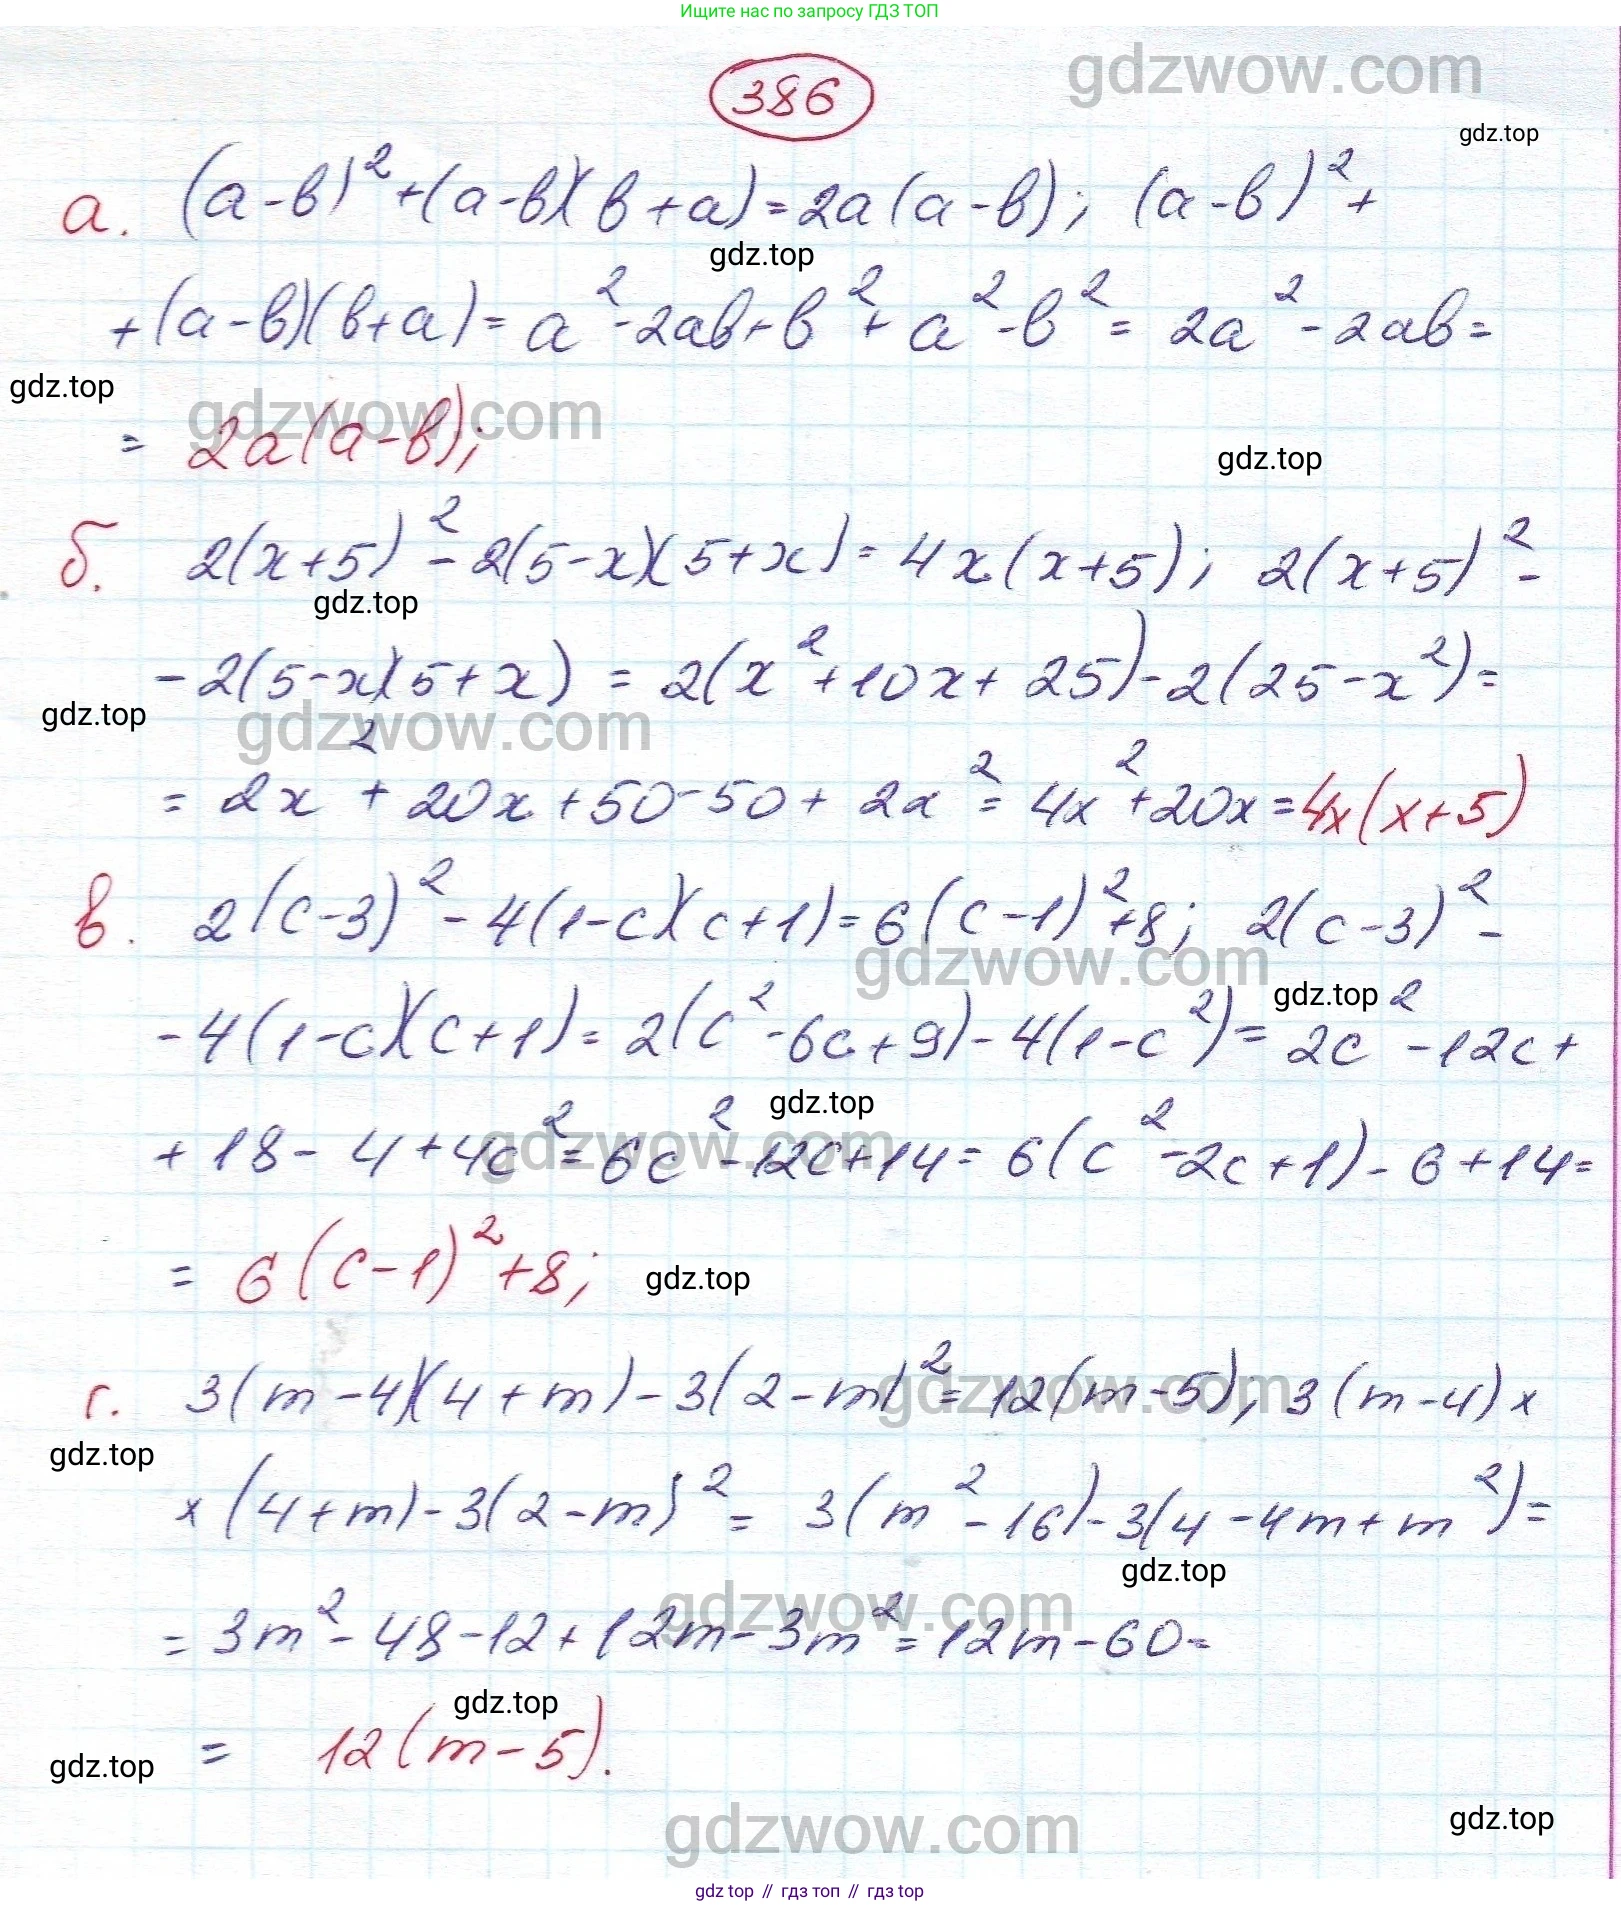 Ищите нас по запросу ГДЗ ТОП
gdzwow.com
386
gdz.top
а. (a-b)²+(a-b)(b+a)=2a(a-b); (a-b)²+
gdz.top
+(a-b)(b+a)=a²-2ab+b²+a²-b²=2a²-2ab=
gdz.top
gdzwow.com
=2a(a-b);
gdz.top
б. 2(x+5)²-2(5-x)(5+x)=4x(x+5); 2(x+5)²-
gdz.top
-2(5-x)(5+x)=2(x²+10x+25)-2(25-x²)=
gdz.top
gdzwow.com
=2x²+20x+50-50+2x²=4x²+20x=4x(x+5)
в. 2(c-3)²-4(1-c)(c+1)=6(c-1)²+8; 2(c-3)²-
gdzwow.com
gdz.top
-4(1-c)(c+1)=2(c²-6c+9)-4(1-c²)=2c²-12c+
gdz.top
gdzwow.com
+18-4+4c²=6c²-12c+14=6(c²-2c+1)-6+14=
=6(c-1)²+8;
gdz.top
г. 3(m-4)(4+m)-3(2-m)²=12(m-5); 3(m-4)×
gdzwow.com
gdz.top
×(4+m)-3(2-m)²=3(m²-16)-3(4-4m+m²)=
gdz.top
gdzwow.com
=3m²-48-12+12m-3m²=12m-60=
gdz.top
=12(m-5).
gdz.top
gdz.top
gdzwow.com
gdz top // гдз топ // гдз top